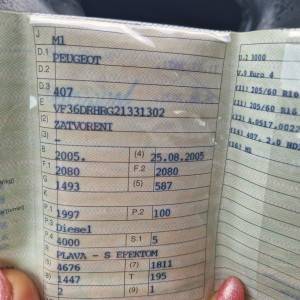 J M1
D.1 PEUGEOT
D.2
D.3 407
E VF36DRHRG21331302
(2) ZATVORENI
(3) –
B 2005. (4) 25.08.2005
F.1 2080 F.2 2080
G 1493 (5) 587
P.1 1997 P.2 100
P.3 Diesel
P.4 4000 S.1 5
R PLAVA - S EFEKTOM
4676 (7) 1811
1447 T 195
2 (9) 1
U.2 3000
V.9 Euro 4
205/60 R16
205/60 R16
407, 2.0 HD
M1